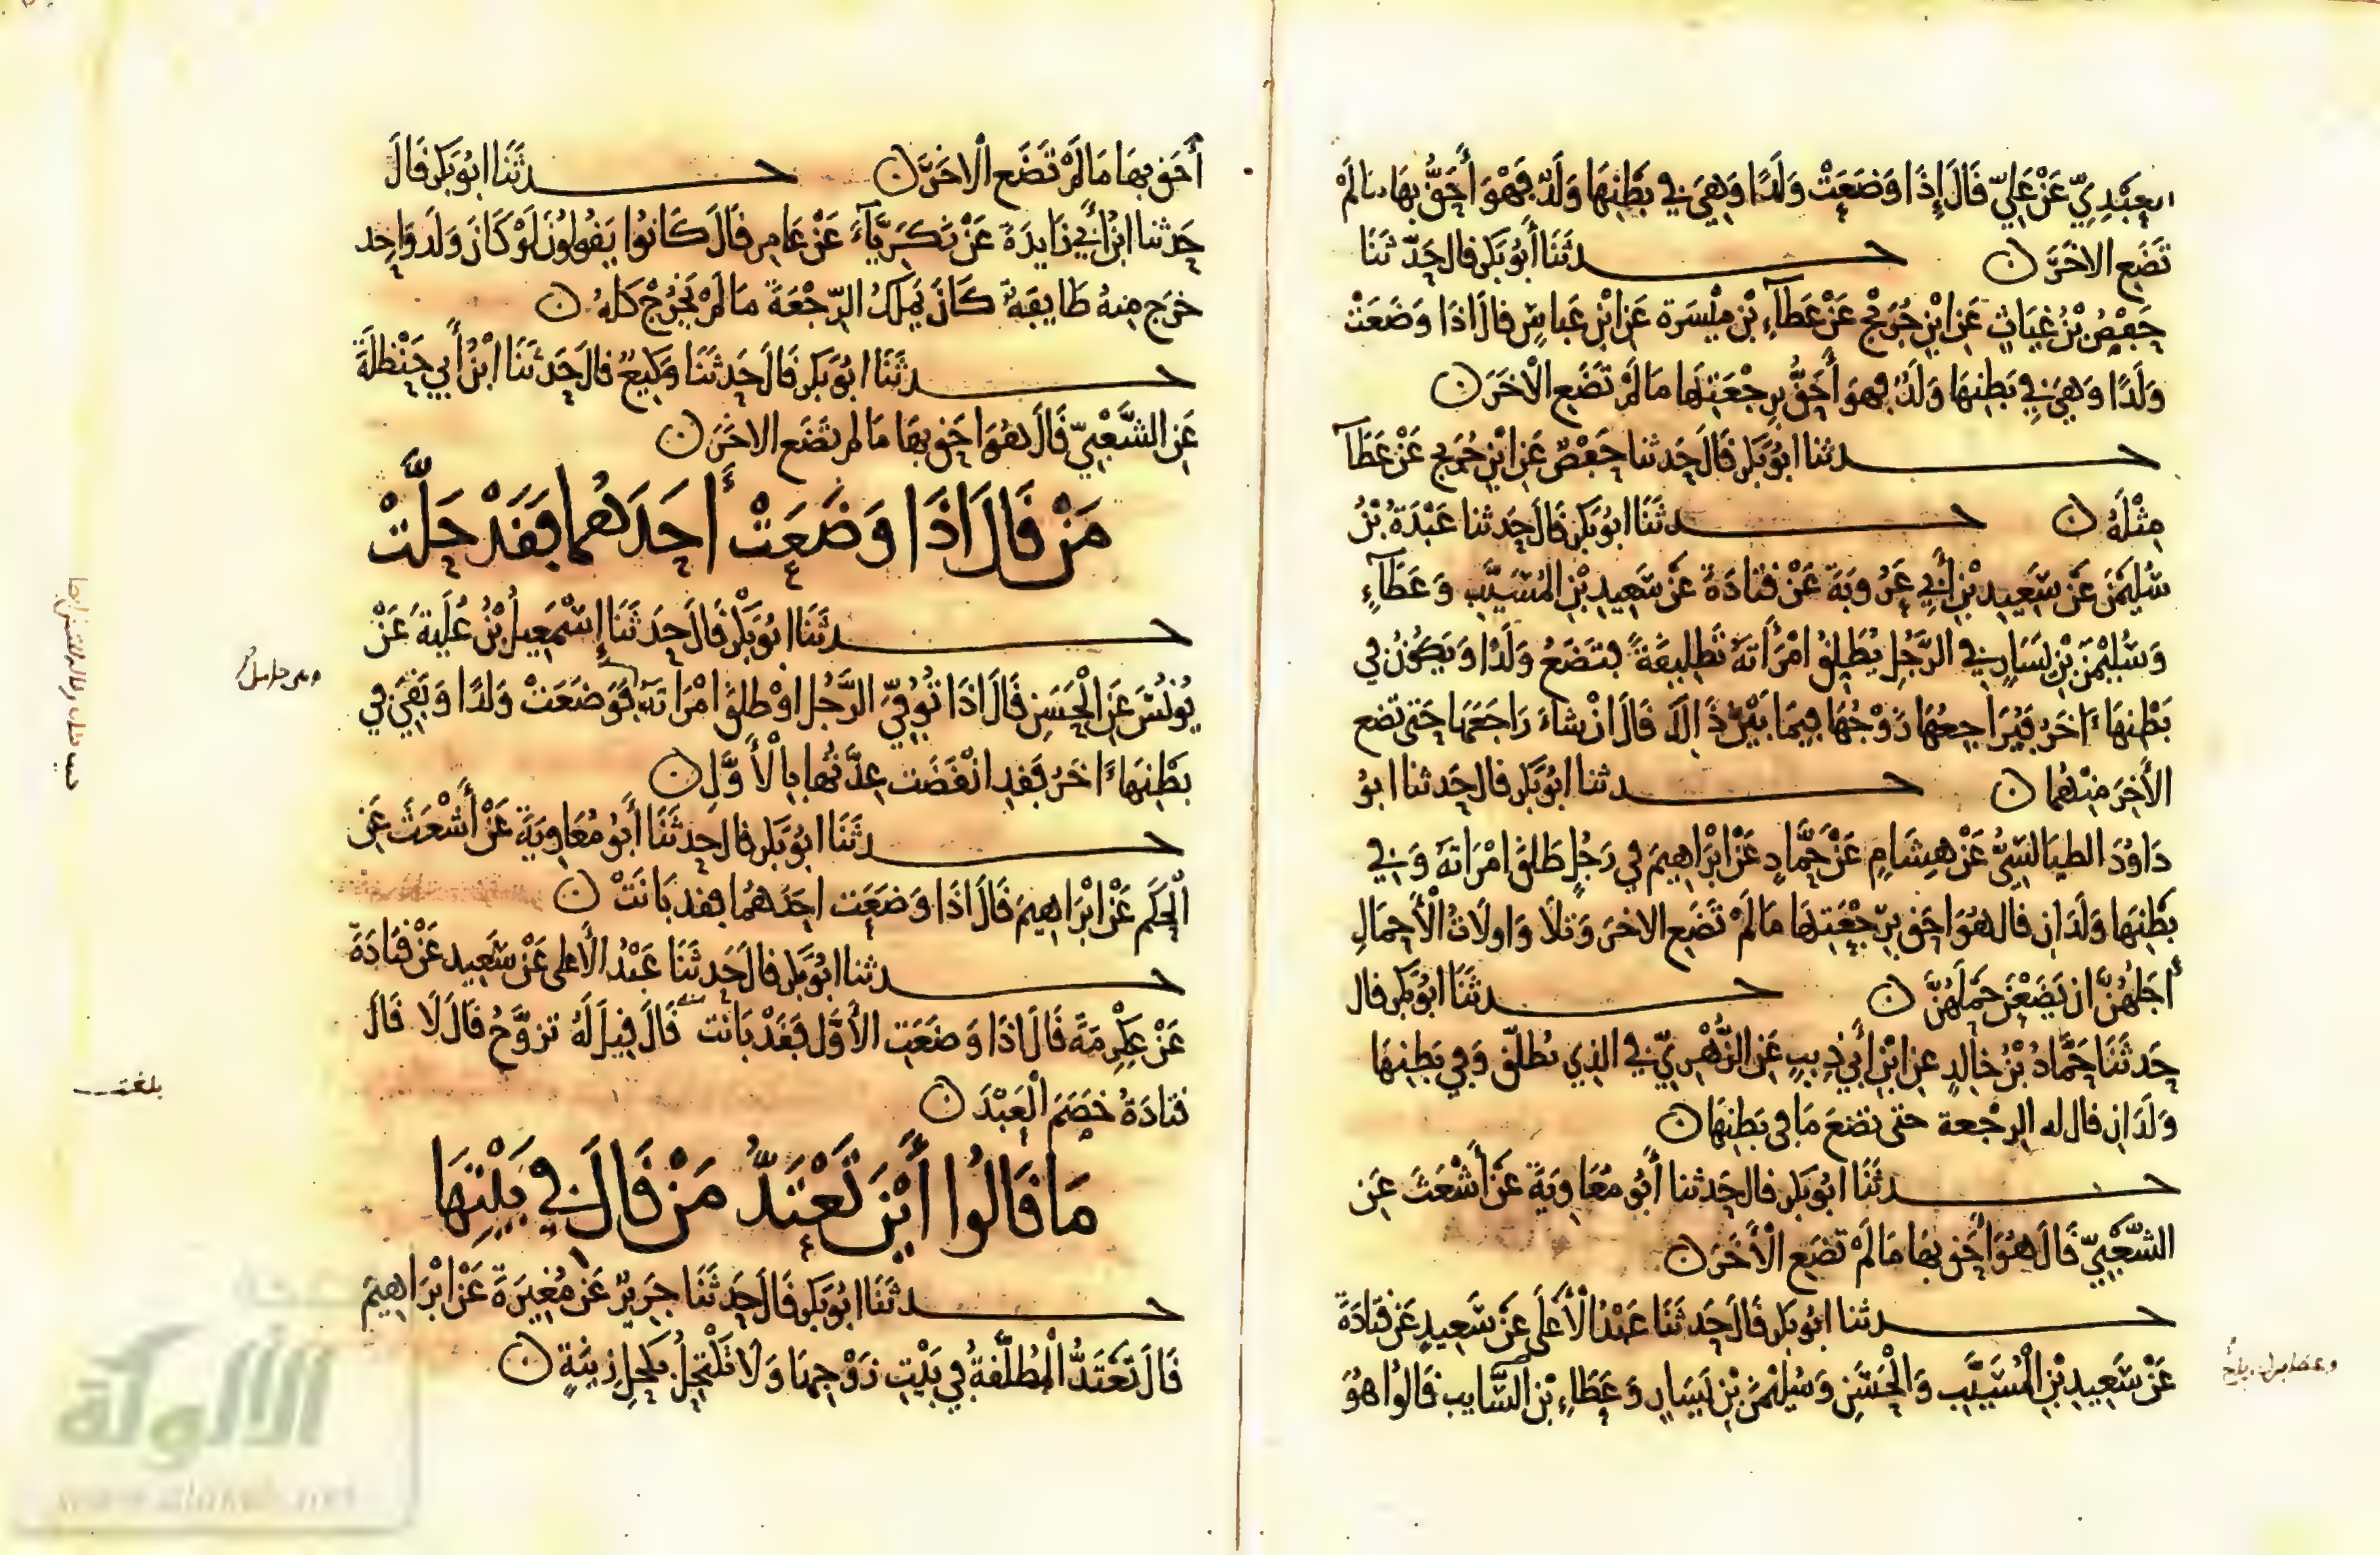 العَبْدِيّ عَنْ عَلِيّ قَالَ إِذَا وَضَعَتْ وَلَدًا وَهِيَ فِي بَطْنِهَا وَلَدٌ فَهُوَ أَحَقُّ بِهَا مَا لَمْ
تَضَعِ الاخَرَ ن حدثَنَا أَبُو بَكر قال حَدّثَنَا
حَفْصُ بْنُ غِيَاثٍ عَنِ ابْنِ جُرَيْجٍ عَنْ عَطَآءِ بْنِ مَيْسَرَة عَنِ ابْنِ عَبَاسٍ قَالَ اذَا وَضَعَتْ
وَلَدًا وَهِيَ فِي بَطْنِهَا وَلَدٌ فهوَ أَحَقُّ بِرِجْعَتِهَا مَا لَمْ تَضَعِ الْاخَرَ ن
حدثنا ابُو بَكر قَالَ حَدثنا حَفْصٌ عَنِ ابْنِ جُرَيج عَنْ عَطَآ
مِثْلَهُ ن حدثَنَا ابُو بَكر قَالَ حَدثنا عَبْدَةُ بْنُ
سُلَيْمٰنَ عَن سَعِيدِ بْنِ أَبِي عَرُوبَةَ عَنْ قتَادَةَ عَن سَعِيدِ بْنِ المُسَيَّبِ وَعَطَآءٍ
وَسُلَيْمٰنَ بْنِ يَسَارٍ فِي الرَّجُلِ يُطَلِّقُ امْرَأَتَهُ تَطْلِيقَةً فتَضَعُ وَلَدًا وَيَكُونُ فِي
بَطْنِهَا ءَاخَرُ فيُرَاجِعُهَا زَوْجُهَا فِيمَا بَيْنَ ذَالكَ قَالَ انْ شَاءَ رَاجَعَهَا حَتى تضع
الأَخِرَ مِنْهُمَا ن حدثنا ابُو بَكر قال حَدثنا ابُو
دَاوُدَ الطيَالسِيُّ عَنْ هِشَامٍ عَنْ حَمَّادٍ عَنْ ابْرَاهِيمَ فِي رَجُلٍ طَلقَ امْرَاتَهُ وَفِي
بَطْنِهَا وَلَدَان قال هُوَ احَق بِرِجْعَتِهَا مَا لَمْ تَضَعِ الاخرَ وَتلَا وَاولَاتُ الْأَحْمَالِ
أَجَلُهُنَّ ان يَضَعْنَ حَمْلَهُنَّ ن حدثَنَا ابُو بَكر قال
حَدثَنَا حَمَّادُ بْنُ خالِدٍ عنِ ابْنِ أَبِي ذِيبٍ عَنِ الزُّهْرِيّ فِي الذِي يُطَلّق وَفِي بَطنِهَا
وَلَدَان قال له الرجْعة حتى تضعَ مَا فى بَطنِهَا ن
حدثَنَا ابُو بَكر قال حَدثنا أَبُو مُعَاوِيَةَ عَنْ أَشْعَثَ عَنِ
الشَّعْبِيّ قَالَ هُوَ أَحَق بهَا مَا لَمْ تَضَع الْأَخَرَ ن
حدثنا ابُو بَكر قَالَ حَدثَنَا عَبْدُ الْأَعْلَى عَنْ سَعِيدٍ عَن قتَادَةَ
عَنْ سَعِيدِ بْنِ الْمُسَيَّبِ وَالْحَسَنِ وَسُلَيْمٰنَ بْنِ يَسَارٍ وَعَطَاءِ بْنِ السَّايب قَالُوا هُوَ
أَحَق بهَا مَا لَمْ تَضَعِ الْاخَرَ ن حدثَنَا ابُو بَكر قَالَ
حَدثنا ابْنُ أَبِي زَايدَةَ عَنْ زَكَرِيَّآءَ عَنْ عَامِرٍ قَالَ كَانُوا يَقُولُونَ لَوْ كَانَ وَلَد وَاحِد
خرَج مِنهُ طَايِفَةٌ كَانَ يَمْلكُ الرّجْعَةَ مَا لَمْ يَخْرُجْ كلهُ ن
حدثَنَا ابُو بَكر قَالَ حَدثَنَا وَكِيعٌ قَالَ حَدثَنَا ابْنُ أَبِي حَنْظَلَةَ
عَنِ الشَّعْبِيّ قَالَ هُوَ احَق بهَا مَا لم تَضَع الاخَرَ ن
مَنْ قَالَ اذَا وَضَعَتْ أحَدَهُمَا فَقَدْ حَلَّتْ
حدثَنَا ابُو بَكْرٍ قَالَ حَدثَنَا إِسْمٰعِيلُ بْنُ عُلَيةَ عَنْ
يُونُسَ عَنِ الْحَسَنِ قَالَ اذَا تُوُفِّيَ الرَّجُل اوْ طلقَ امْرَاتَهُ فَوَضَعَتْ وَلَدًا وَبَقِيَ فِي
بَطْنِهَا ءَاخَرُ فَقَدِ انْقَضَت عِدَّتُهَا بِالْأَوَّلِ ن
حدثَنَا ابُو بَكر قال حَدثَنَا أَبُو مُعَاوِيَةَ عَنْ أَشْعَثَ عَنِ
الْحَكَمِ عَنْ ابْرَاهِيمَ قَالَ اذَا وَضَعَت احَدَهُمَا فقد بَانَتْ ن
حدثنا ابُو بَكر قال حَدثَنَا عَبْدُ الأَعلى عَنْ سَعِيد عَنْ قتَادَةَ
عَنْ عِكْرِمَةَ قَالَ اذَا وَضَعَتِ الأَوَّل فَقَدْ بَانت قَالَ قِيلَ لَهُ تزوَّجُ قَالَ لَا قَالَ
قتادَةُ خصَمَ الْعَبْدَ ن
مَا قَالُوا أَيْنَ تَعْتَدُّ مَنْ قَالَ فِي بَيْتِهَا
حدثَنَا ابُو بَكر قَالَ حَدثَنَا جَرِيرٌ عَن مُغِيرَةَ عَنْ ابْرَاهِيمَ
قَالَ تَعْتَدُّ الْمُطَلَّقةُ فِي بَيْتِ زَوْجِهَا وَلَا تَكْتَحِلُ بِكُحلِ زِينَةٍ ن
بلغت
الألوكة
www.alukah.net